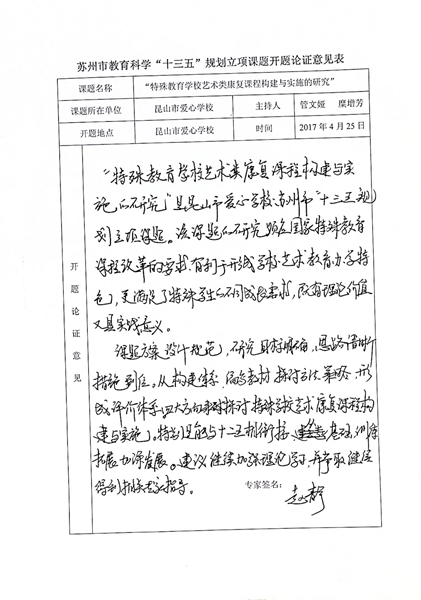 苏州市教育科学“十三五”规划立项课题开题论证意见表
课题名称 “特殊教育学校艺术类康复课程构建与实施的研究”
课题所在单位 昆山市爱心学校 主持人 管文娅 糜增芳
开题地点 昆山市爱心学校 时间 2017年4月25日
开题论证意见
“特殊教育学校艺术类康复课程构建与实
施的研究”是昆山市爱心学校苏州市“十三五规
划立项课题。该课题的研究顺应国家特殊教育
课程改革的要求,有利于形成学校艺术教育办学特
色,更满足了特殊学生的不同成长需求,既有理论价值
又具实践意义。
课题方案设计规范,研究目标明确,思路清晰
措施到位。从构建体系、编写教材、探讨方法策略、形
成评价体系四大方面探讨特殊学校艺术康复课程构
建与实施。特别是能与十二五 衔接 基础
拓展 发展。建议继续加强理论学习,并争取继续
得到 专家指导。
专家签名: